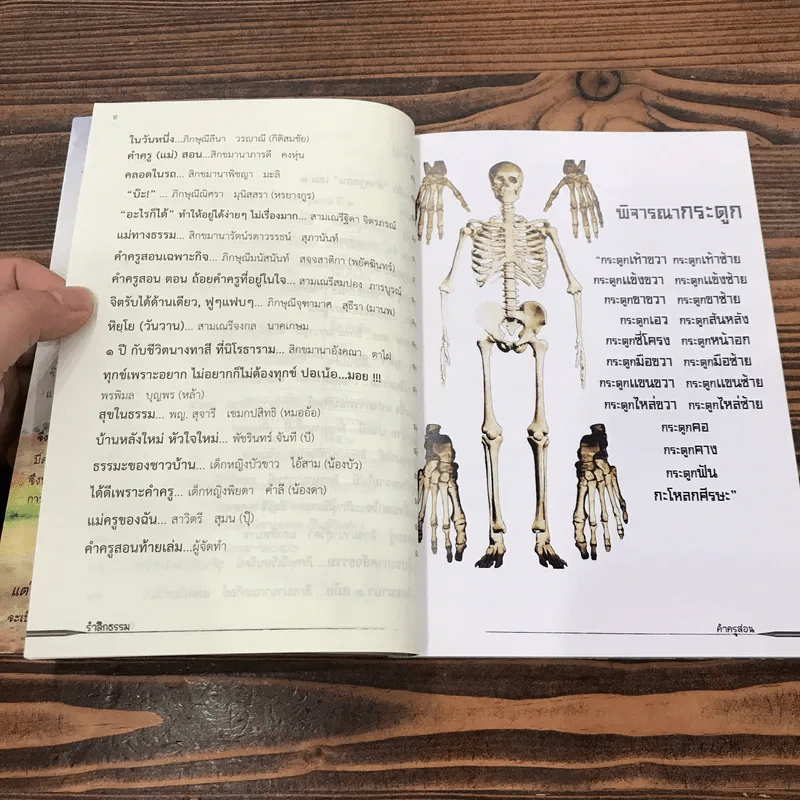 ในวันหนึ่ง...ภิกษุณีลีนา วรญาณี (กิติสมชัย)
คำครู (แม่) สอน...สิกขมานาภารดี คงหุ่น
คลอดในรถ...สิกขมานาพิชญา มะลิ
"บ๊ะ!"... ภิกษุณีณิศรา มุนิสสรา (หรยางกูร)
"อะไรก็ได้" ทำให้อยู่ได้ง่ายๆ ไม่เรื่องมาก... สามเณรีฐิดา จิตรภรณ์
แม่ทางธรรม... สิกขมานารัตน์รดาวรรธน์ สุภานันท์
คำครูสอนเฉพาะกิจ... ภิกษุณีมนัสนันท์ สจฺจสาทิกา (พยัคฆินทร์)
คำครูสอน ตอน ถ้อยคำครูที่อยู่ในใจ... สามเณรีสมปอง ภารบูรณ์
จิตรับได้ด้านเดียว, ฟูๆแฟบๆ... ภิกษุณีจุฑามาศ สุธีรา (มานพ)
หิยฺโย (วันวาน)... สามเณรีจงกล นาคเกษม
๑ ปี กับชีวิตนางทาสี ที่นิโรธาราม... สิกขมานาอังคณา ตาไฝ
ทุกข์เพราะอยาก ไม่อยากก็ไม่ต้องทุกข์ ปอเน้อ...มอย !!!
พรพิมล บุญพร (หล้า)
สุขในธรรม... พญ. สุจารี เขมกปสิทธิ์ (หมออ้อ)
บ้านหลังใหม่ หัวใจใหม่... พัชรินทร์ จันที (บี)
ธรรมะของชาวบ้าน... เด็กหญิงบัวขาว ไอ้สาม (น้องบัว)
ได้ดีเพราะคำครู... เด็กหญิงพิยดา คำสี (น้องดา)
แม่ครูของฉัน... สาวิตรี สุมน (ปุ๊)
คำครูสอนท้ายเล่ม...ผู้จัดทำ
รำลึกธรรม
พิจารณากระดูก
"กระดูกเท้าขวา กระดูกเท้าซ้าย
กระดูกแข้งขวา กระดูกแข้งซ้าย
กระดูกขาขวา กระดูกขาซ้าย
กระดูกเอว กระดูกสันหลัง
กระดูกซี่โครง กระดูกหน้าอก
กระดูกมือขวา กระดูกมือซ้าย
กระดูกแขนขวา กระดูกแขนซ้าย
กระดูกไหล่ขวา กระดูกไหล่ซ้าย
กระดูกคอ
กระดูกคาง
กระดูกฟัน
กะโหลกศีรษะ"
คำครูสอน